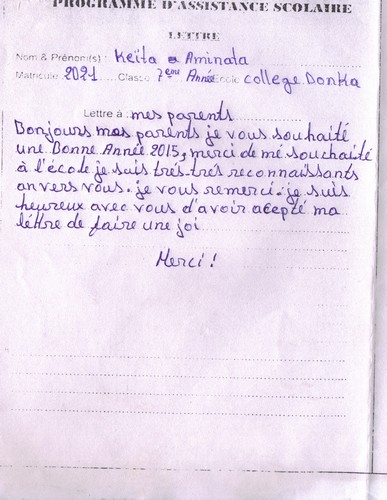 PROGRAMME D'ASSISTANCE SCOLAIRE
LETTRE
Nom & Prénom(s) : Keïta Aminata
Matricule 2021 Classe 7ème Année Ecole College Donka
Lettre à : mes parents
Bonjours mes parents je vous souhaité
une Bonne Année 2015, merci de mé souchaité
à l'école je suis trés-trés reconnaissants
anvers vous. je vous remerci. je suis
heureux avec vous d'avoir acepté ma
lettre de faire une joi
Merci !